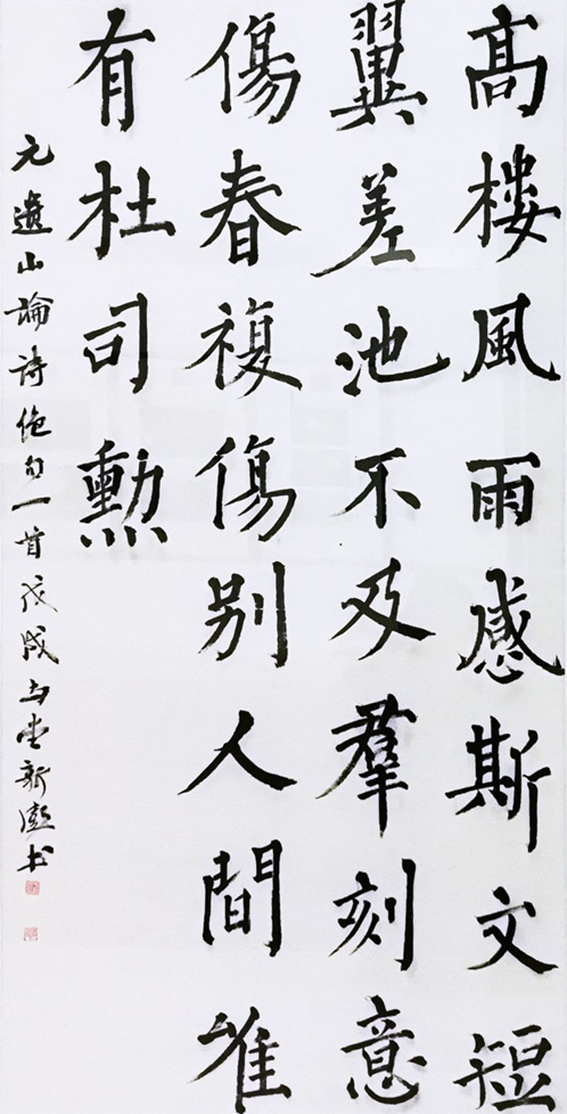 高樓風雨感斯文短
翼差池不及羣刻意
傷春複傷别人間唯
有杜司勳
元遺山論詩絶句一首戊戌新书